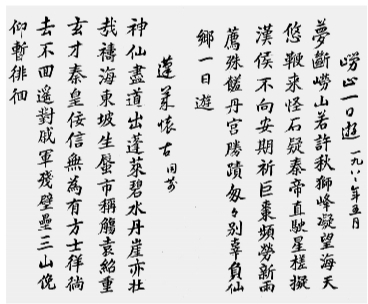 崂山一日遊 一九八八年五月
夢斷嶗山若許秋獅峰凝望海天
悠鞭來怪石疑秦帝直駛星槎擬
漢侯不向安期祈巨棗頻勞新雨
薦珠饈丹宮勝蹟匆々别辜負仙
鄉一日遊
蓬萊懷古
神仙盡道出蓬萊碧水丹崖亦壮
哉禱海東坡生蜃市稱觴袁紹重
玄才秦皇佞信無為有方士徉徜
去不回遥對戚軍殘壁壘三山俛
仰暫徘徊